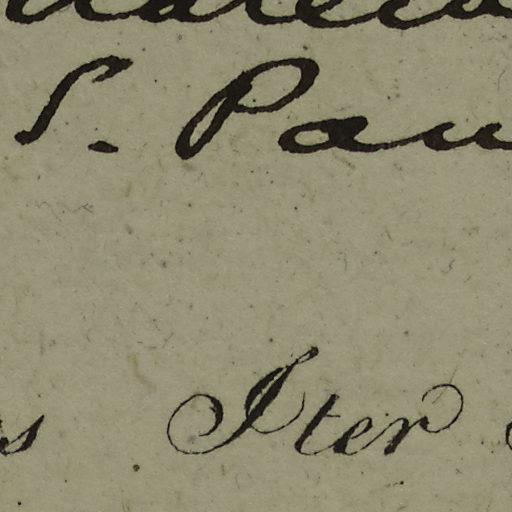 S. Pau
s Iter